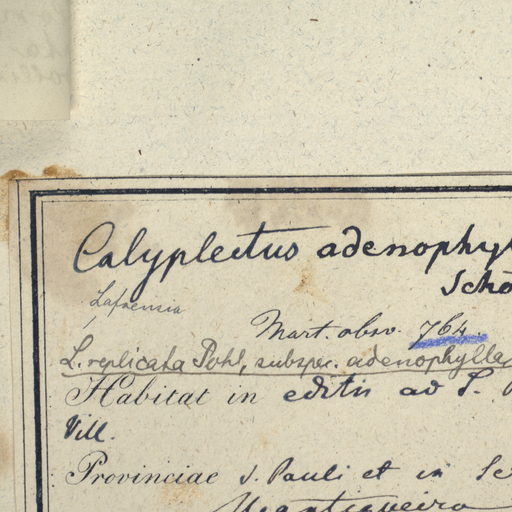 Calyplectus adenophy
Scho
Lafoensia
Mart. obsv. 764.
L. replicata Pohl, subspec. adenophylla
Habitat in editis ad S.
Vill.
Provinciae S. Pauli et in Se
Mantiqueira